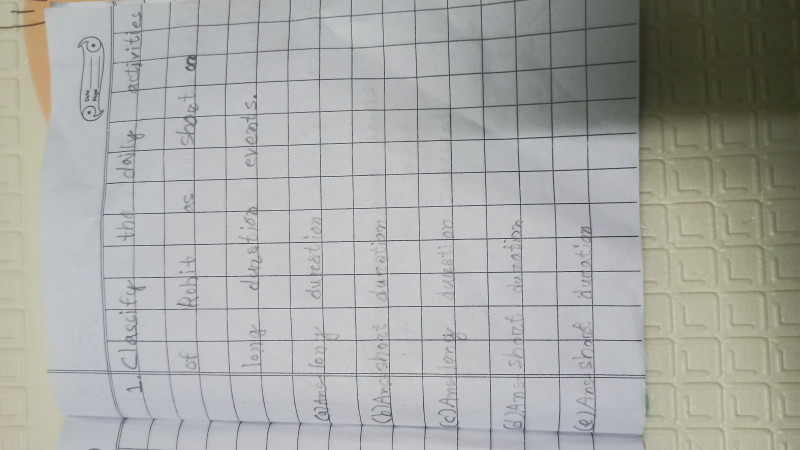 Date
Page
1. Classify the daily activities
of Rohit as short on
long duration events.
(a) Ans long duration
(b) Ans short duration
(c) Ans long duration
(d) Ans short duration
(e) Ans short duration